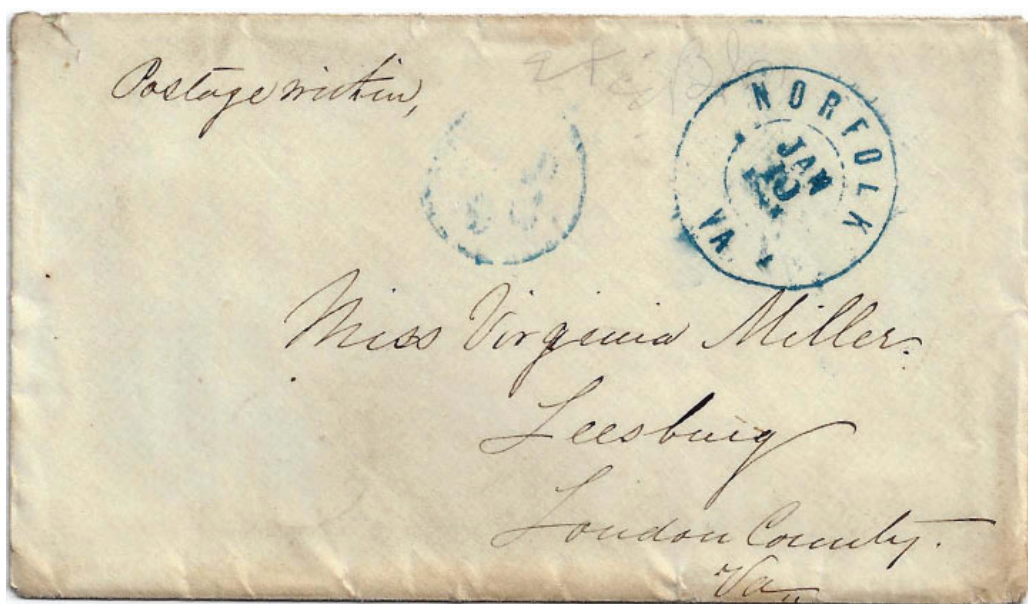 Postage within,
NORFOLK
JAN
10
VA.
Miss Virginia Miller.
Leesburg
Loudon County.
Va